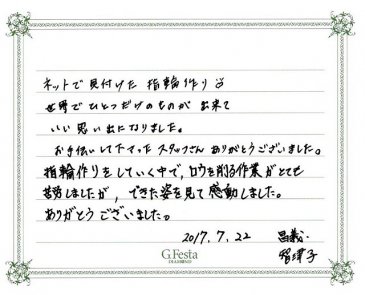 ネットで見付けた指輪作り
世界でひとつだけのものが出来て
いい思い出になりました。
お手伝いして下さったスタッフさんありがとうございました。
指輪作りをしていく中で、ロウを削る作業がとても
苦労しましたが、できた姿を見て感動しました。
ありがとうございました。
2017.7.22 昌義
G.Festa
DIAMOND